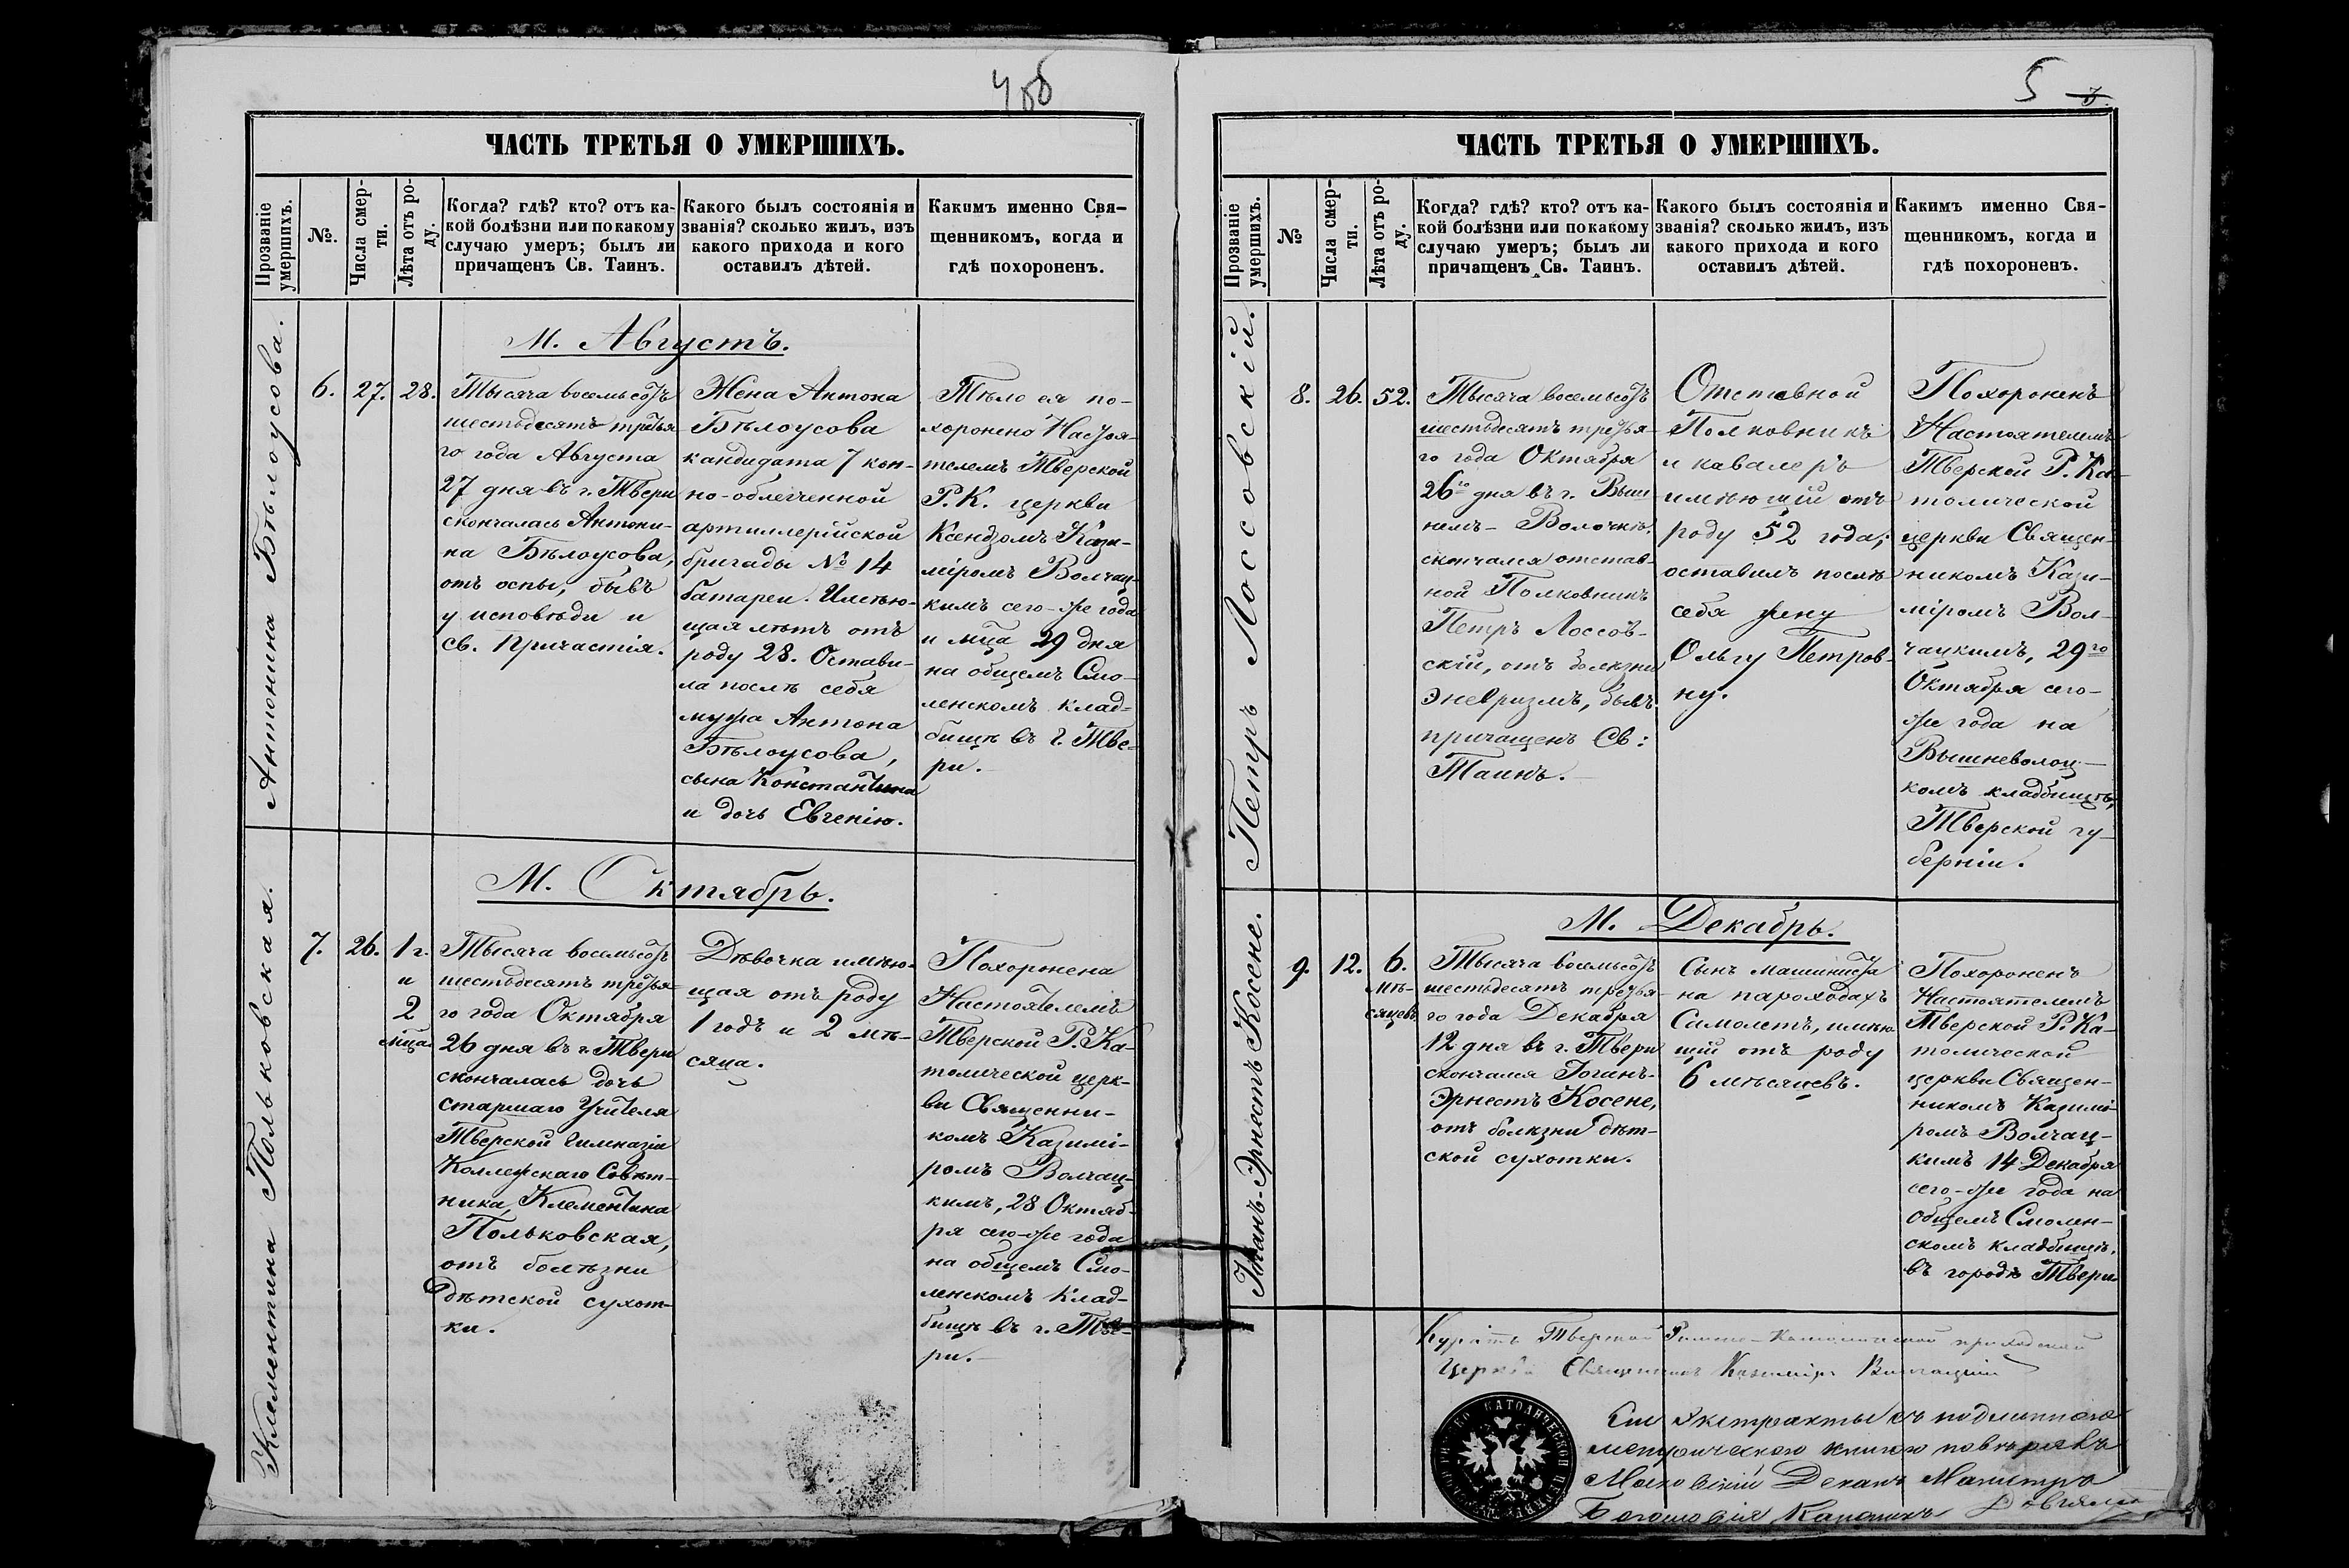 4об
ЧАСТЬ ТРЕТЬЯ О УМЕРШИХЪ.
Прозваніе
умершихъ.
№.
Числа смер-
ти.
Лѣта отъ ро-
ду.
Когда? гдѣ? кто? отъ ка-
кой болѣзни или по какому
случаю умеръ; былъ ли
причащенъ Св. Таинъ.
Какого былъ состоянія и
званія? сколько жилъ, изъ
какого прихода и кого
оставилъ дѣтей.
Какимъ именно Свя-
щенникомъ, когда и
гдѣ похороненъ.
М. Августъ.
Антонина Бѣлоусова.
6.
27.
28.
Тысяча восемьсотъ
шестьдесятъ третья-
го года Августа
27 дня въ г. Твери
скончалась Антони-
на Бѣлоусова,
отъ оспы, бывъ
у исповѣди и
св. Причастія.
Жена Антона
Бѣлоусова
кандидата 7 кон-
но-облегченной
артиллерійской
бригады № 14
батареи. Имѣю-
щая лѣтъ отъ
роду 28. Остави-
ла послѣ себя
мужа Антона
Бѣлоусова,
сына Константина
и дочь Евгенію.
Тѣло ея по-
хоронено Настоя-
телемъ Тверской
Р. К. церкви
Ксендзомъ Кази-
міромъ Волчац-
кимъ сего-же года
и мца 29 дня
на общемъ Смо-
ленскомъ клад-
бищѣ въ г. Тве-
ри.
М. Октябрь.
Клементина Польковская.
7.
26.
1 г.
и
2
мца.
Тысяча восемьсотъ
шестьдесятъ третья-
го года Октября
26 дня въ г. Твери
скончалась дочь
старшаго Учителя
Тверской Гимназіи
Коллежскаго Совѣт-
ника, Клементина
Польковская,
отъ болѣзни
дѣтской сухот-
ки.
Дѣвочка имѣю-
щая отъ роду
1 годъ и 2 мѣ-
сяца.
Похоронена
Настоятелемъ
Тверской Р. Ка-
толической церк-
ви Священни-
комъ Казимі-
ромъ Волчац-
кимъ, 28 Октяб-
ря сего-же года
на общемъ Смо-
ленскомъ Клад-
бищѣ въ г. Тве-
ри.
5
ЧАСТЬ ТРЕТЬЯ О УМЕРШИХЪ.
Прозваніе
умершихъ.
№
Числа смер-
ти.
Лѣта отъ ро-
ду.
Когда? гдѣ? кто? отъ ка-
кой болѣзни или по какому
случаю умеръ; былъ ли
причащенъ Св. Таинъ.
Какого былъ состоянія и
званія? сколько жилъ, изъ
какого прихода и кого
оставилъ дѣтей.
Какимъ именно Свя-
щенникомъ, когда и
гдѣ похороненъ.
Петръ Лоссовскій.
8.
26.
52.
Тысяча восемьсотъ
шестьдесятъ третья-
го года Октября
26го дня въ г. Выш-
немъ-Волочкѣ
скончался отстав-
ной Полковникъ
Петръ Лоссов-
скій, отъ болѣзни
эневризмъ, бывъ
причащенъ Св:
Таинъ.
Отставной
Полковникъ
и кавалеръ
имѣющій отъ
роду 52 года;
оставилъ послѣ
себя жену
Ольгу Петров-
ну.
Похороненъ
Настоятелемъ
Тверской Р. Ка-
толической
церкви Священ-
никомъ Кази-
міромъ Вол-
чацкимъ, 29го
Октября сего-
же года на
Вышневолоц-
комъ кладбищѣ,
Тверской гу-
берніи.
М. Декабрь.
Іоганъ-Эрнестъ Косене.
9.
12.
6.
мѣ-
сяцевъ
Тысяча восемьсотъ
шестьдесятъ третья-
го года Декабря
12 дня въ г. Твери
скончался Іоганъ-
Эрнестъ Косене,
отъ болѣзни дѣт-
ской сухотки.
Сынъ машиниста
на пароходахъ
Самолетъ, имѣю-
щій отъ роду
6 мѣсяцевъ.
Похороненъ
Настоятелемъ
Тверской Р. Ка-
толической
церкви Священ-
никомъ Казимі-
ромъ Волчац-
кимъ 14 Декабря
сего-же года на
общемъ Смолен-
скомъ кладбищѣ,
въ городѣ Твери
Куратъ Тверской Римско-Католической приходской
Церкви Священникъ Казиміръ Волчацкій
Сіи Экстракты съ подлинною
метрическою книгою повѣрялъ
Московскій Деканъ Магистръ
Богословія Каноникъ
КАТОЛИЧЕСКОЙ